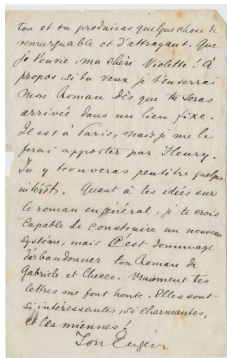 ton et tu produiras quelque chose de
remarquable et d'attrayant. Que
je t'envie, ma chère Violette! À
propos, si tu veux je t'enverrai
mon Roman dès que tu seras
arrivée dans un lieu fixe.
Il est à Paris, mais je me le
ferai apporter par Fleury.
Tu y trouveras peut être quelque
intérêt. Quant à tes idées sur
le roman en général, je te crois
capable de construire un nouveau
système, mais c'est dommage
d'abandonner ton Roman de
Gabriele et Checco. Vraiment tes
lettres me font honte. Elles sont
si intéressantes, si charmantes,
et les miennes!
Ton Eugène